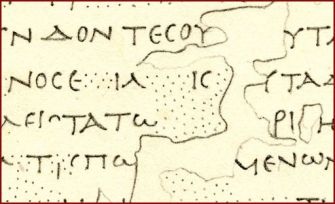 Ν ΔΟΝ ΤΕϹΟΥ ΥΤΑ
ΝΟϹΕ ΙΛ ΙϹ ΥΤΑΔ
ΛΕΙΟΤΑΤΩ ΡΙ Η
ΤΙϹΠΩ ΜΕΝΩΝ